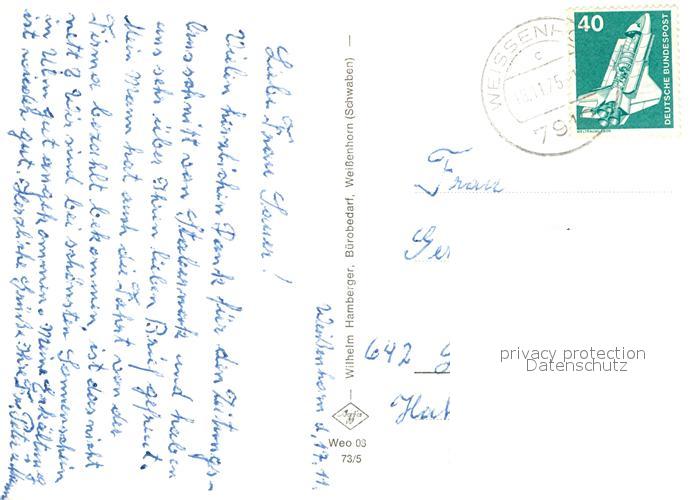 Weißenhorn d. 17.11.
Liebe Frau Sauer!
Vielen herzlichen Dank für den Zeitungs-
Ausschnitt von und haben
uns sehr über Ihren lieben Brief gefreut.
Mein Mann hat auch die Fahrt von der
Firma bezahlt bekommen, ist das nicht
nett? Wir sind bei schönstem Sonnenschein
in Ulm gut angekommen. Meine Erkältung
ist wieder gut. Herzliche Grüße Ihre
Wilhelm Hamberger, Bürobedarf, Weißenhorn (Schwaben)
Weo 03
73/5
WEISSENHORN
c
791
40
DEUTSCHE BUNDESPOST
WELTRAUMLABOR
Frau
Ger
642
Hat
privacy protection
Datenschutz